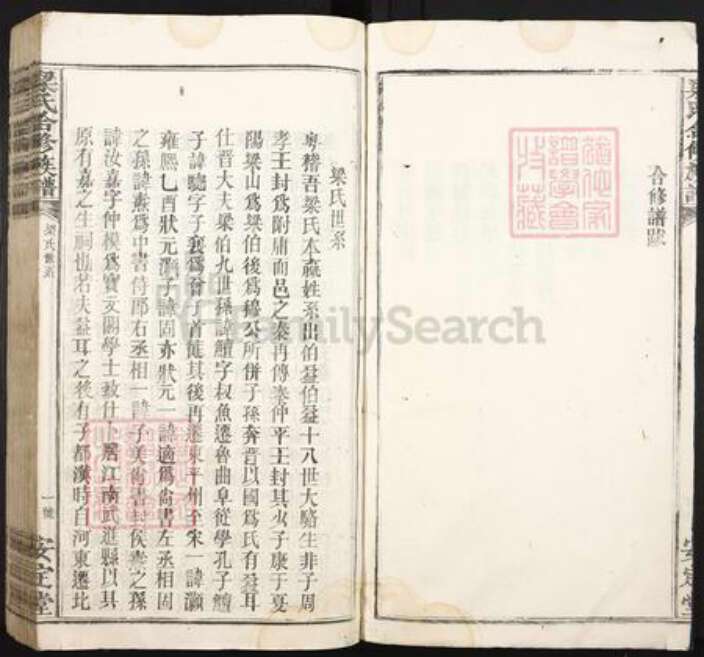 合修譜跋
梁氏合修族譜
安定堂
梁氏世系
粵稽吾梁氏本嬴姓系出伯益伯益十八世大駱生非子周
孝王封為附庸而邑之秦再傳秦仲平王封其少子康于夏
陽梁山為梁伯後為穆公所併子孫奔晋以國為氏有益耳
仕晋大夫梁伯九世孫諱鱣字叔魚遷魯曲阜從學孔子鱣
子諱驄字子襄為
子首
其後再遷東平州至宋一諱灝
雍熙乙酉狀元灝子諱固亦狀元一諱適為尚書左丞相固
之孫諱燾為中書侍郎右丞相一諱子美尚書封侯燾之孫
諱汝嘉字仲模為寶文閣學士致仕
居江南武進縣以其
原有嘉之生祠也若夫益耳之後有子都漢時自河東遷北
梁氏合修族譜
梁氏世系
一號
安定堂
FamilySearch